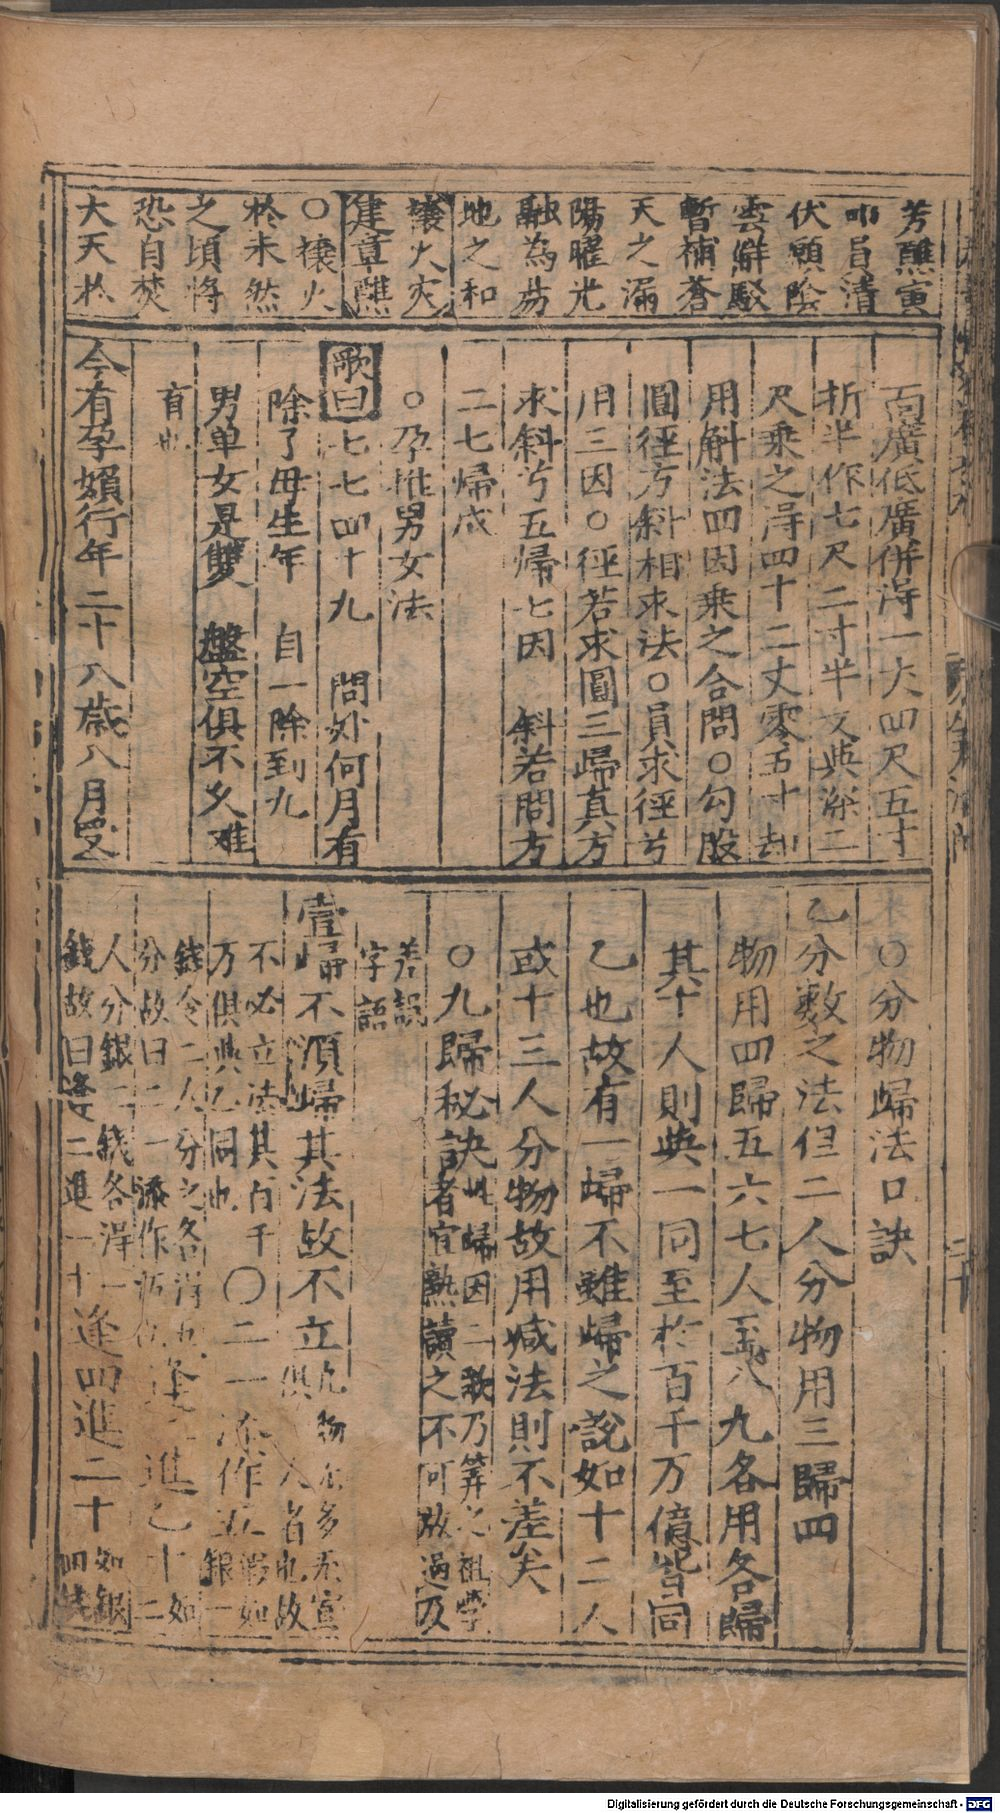 芳醮寅
叩員清
伏願陰
雲解駁
暫補蒼
天之漏
陽曜光
融為昜
地之和
禳火灾
建章醮
○禳火
於未然
之頃将
恐自焚
大天於
面廣低廣併淂一丈四尺五寸
折半作七尺二寸半又與深二
尺乗之淂四十二丈零五寸却
用斛法四因乗之合問○勾股
圓徑方斜相求法○員求徑兮
用三因○徑若求圓三歸真方
求斜兮五歸七因 斜若問方
二七歸成
○孕推男女法
歌曰七七四十九 問外何月有
除了母生年 自一除到九
男单女是雙 盤空俱不久难
育也
今有孕嬪行年二十八歳八月受
○分物歸法口訣
乙分数之法但二人分物用三歸四
物用四歸五六七人至八九各用各歸
其十人則與一同至於百千万億皆同
乙也故有一歸不雖歸之説如十二人
或十三人分物故用減法則不差矣
○九歸秘訣此歸因二歌乃筭之祖學
者宜熟讀之不可放過及
差誤
字語
壹歸不湏歸其法故不立凡物不多焉宣
俱 人者也故
不必立法其百千
万俱與乙同也
○二一添作五假如
銀一
錢令二人分之各淂五
分故曰二一添作五
逢二進乙十如
二
人分銀二錢各淂一
錢故曰逢二進一十
逢四進二十如銀
四錢
Digitalisierung gefördert durch die Deutsche Forschungsgemeinschaft - DFG